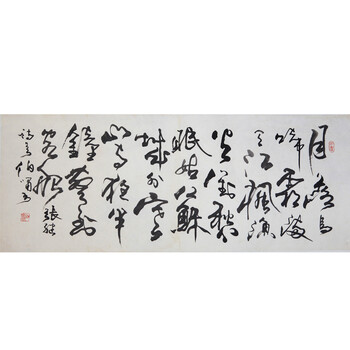 月落烏
啼霜滿
天江楓漁
火對愁
眠姑蘇
城外寒
山寺夜半
鐘聲到
客船 張繼
伯 書